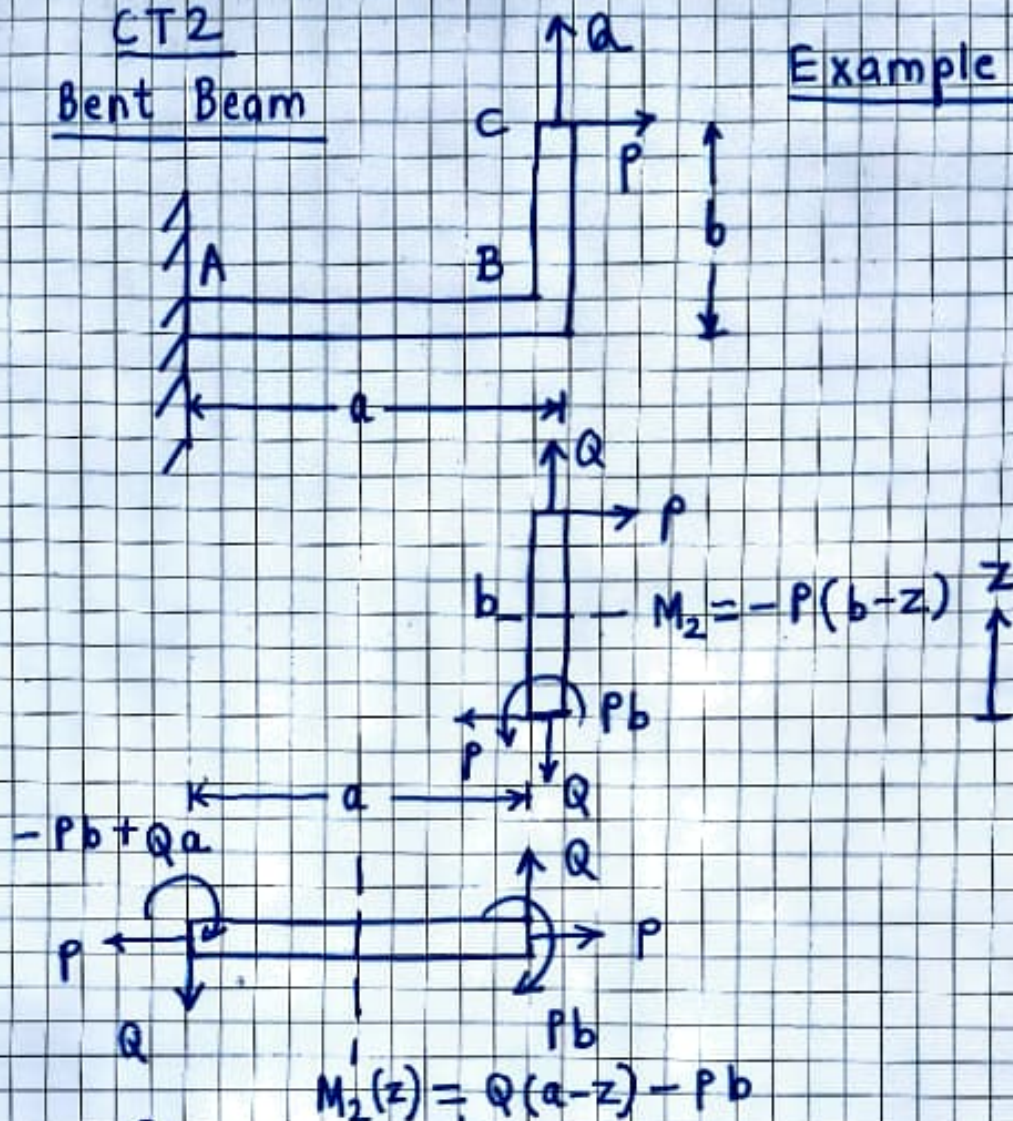 CT2
Bent Beam
Example
Q
C
P
b
A
B
a
Q
P
b
M₂ = -P(b-z)
z
Pb
P
Q
a
-Pb+Qa
Q
P
P
Q
Pb
M₂(z) = Q(a-z) - Pb